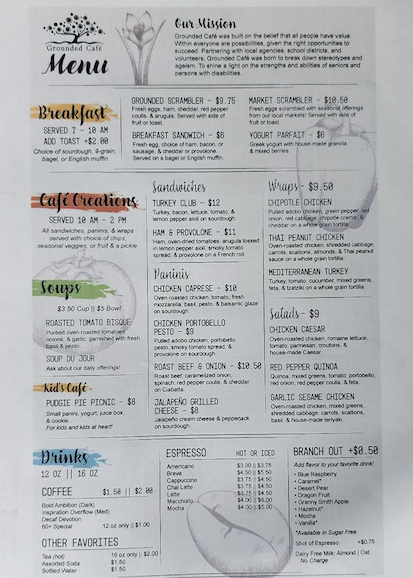 Grounded Café
Menu
Our Mission
Grounded Café was built on the belief that all people have value.
Within everyone are possibilities, given the right opportunities to
succeed. Partnering with local agencies, school districts, and
volunteers, Grounded Café was born to break down stereotypes and
ageism. To shine a light on the strengths and abilities of seniors and
persons with disabilities.
Breakfast
SERVED 7 - 10 AM
ADD TOAST +$2.00
Choice of sourdough, 9-grain,
bagel, or English muffin.
GROUNDED SCRAMBLER - $9.75
Fresh eggs, ham, cheddar, red pepper
coulis, & arugula. Served with side of
fruit or toast.
BREAKFAST SANDWICH - $6
Fresh egg, choice of ham, bacon, or
sausage, & cheddar or provolone.
Served on a bagel or English muffin.
MARKET SCRAMBLER - $10.50
Fresh eggs scrambled with seasonal offerings
from our local markets! Served with side of
fruit or toast.
YOGURT PARFAIT - $6
Greek yogurt with house-made granola
& mixed berries.
Café Creations
SERVED 10 AM - 2 PM
All sandwiches, paninis, & wraps
served with choice of chips,
seasonal veggies, or fruit & a pickle
Soups
$3.50 Cup || $5 Bowl
ROASTED TOMATO BISQUE
Puréed oven-roasted tomatoes,
onions, & garlic, garnished with fresh
basil & pesto.
SOUP DU JOUR
Ask about our daily offerings!
Kid's Café
PUDGIE PIE PICNIC - $8
Small panini, yogurt, juice box,
& cookie.
For kids and kids at heart!
Sandwiches
TURKEY CLUB - $12
Turkey, bacon, lettuce, tomato, &
lemon pepper aioli on sourdough.
HAM & PROVOLONE - $11
Ham, oven-dried tomatoes, arugula tossed
in lemon pepper aioli, smoky tomato
spread, & provolone on a French roll.
Paninis
CHICKEN CAPRESE - $10
Oven-roasted chicken, tomato, fresh
mozzarella, basil, pesto, & balsamic glaze
on sourdough
CHICKEN PORTOBELLO
PESTO - $9
Pulled adobo chicken, portobello,
pesto, smoky tomato spread, &
provolone on sourdough
ROAST BEEF & ONION - $10.50
Roast beef, caramelized onion,
spinach, red pepper coulis, & cheddar
on Ciabatta
JALAPEÑO GRILLED
CHEESE - $8
Jalapeño cream cheese & pepperjack
on sourdough
Wraps - $9.50
CHIPOTLE CHICKEN
Pulled adobo chicken, green pepper, red
onion, red cabbage, chipotle crema, &
cheddar on a whole grain tortilla
THAI PEANUT CHICKEN
Oven-roasted chicken, shredded cabbage,
carrots, scallions, almonds, & Thai peanut
sauce on a whole grain tortilla
MEDITERRANEAN TURKEY
Turkey, tomato, cucumber, mixed greens,
feta, & tzatziki on a whole grain tortilla.
Salads - $9
CHICKEN CAESAR
Oven-roasted chicken, romaine lettuce,
tomato, parmesan, croutons, &
house-made Caesar
RED PEPPER QUINOA
Quinoa, mixed greens, tomato, portobello,
red onion, red pepper coulis, & feta.
GARLIC SESAME CHICKEN
Oven-roasted chicken, mixed greens,
shredded cabbage, carrots, scallions,
basil, & house-made teriyaki
Drinks
12 OZ || 16 OZ
COFFEE $1.50 || $2.00
Bold Ambition (Dark)
Inspiration Overflow (Med)
Decaf Devotion
60+ Special 12 oz only || $1.00
OTHER FAVORITES
Tea (hot) 16 oz only || $2.00
Assorted Soda $1.50
Bottled Water $1.50
ESPRESSO HOT OR ICED
Americano $3.00 || $3.75
Breve $4.50 || $5.50
Cappuccino $3.75 || $4.50
Chai Latte $3.75 || $4.50
Latte $3.75 || $4.50
Macchiato $4.00 || $5.00
Mocha $4.00 || $5.00
BRANCH OUT +$0.50
Add flavor to your favorite drink!
• Blue Raspberry
• Caramel*
• Desert Pear
• Dragon Fruit
• Granny Smith Apple
• Hazelnut*
• Mocha
• Vanilla*
*Available in Sugar Free
Shot of Espresso +$0.75
Dairy Free Milk: Almond | Oat
No Charge